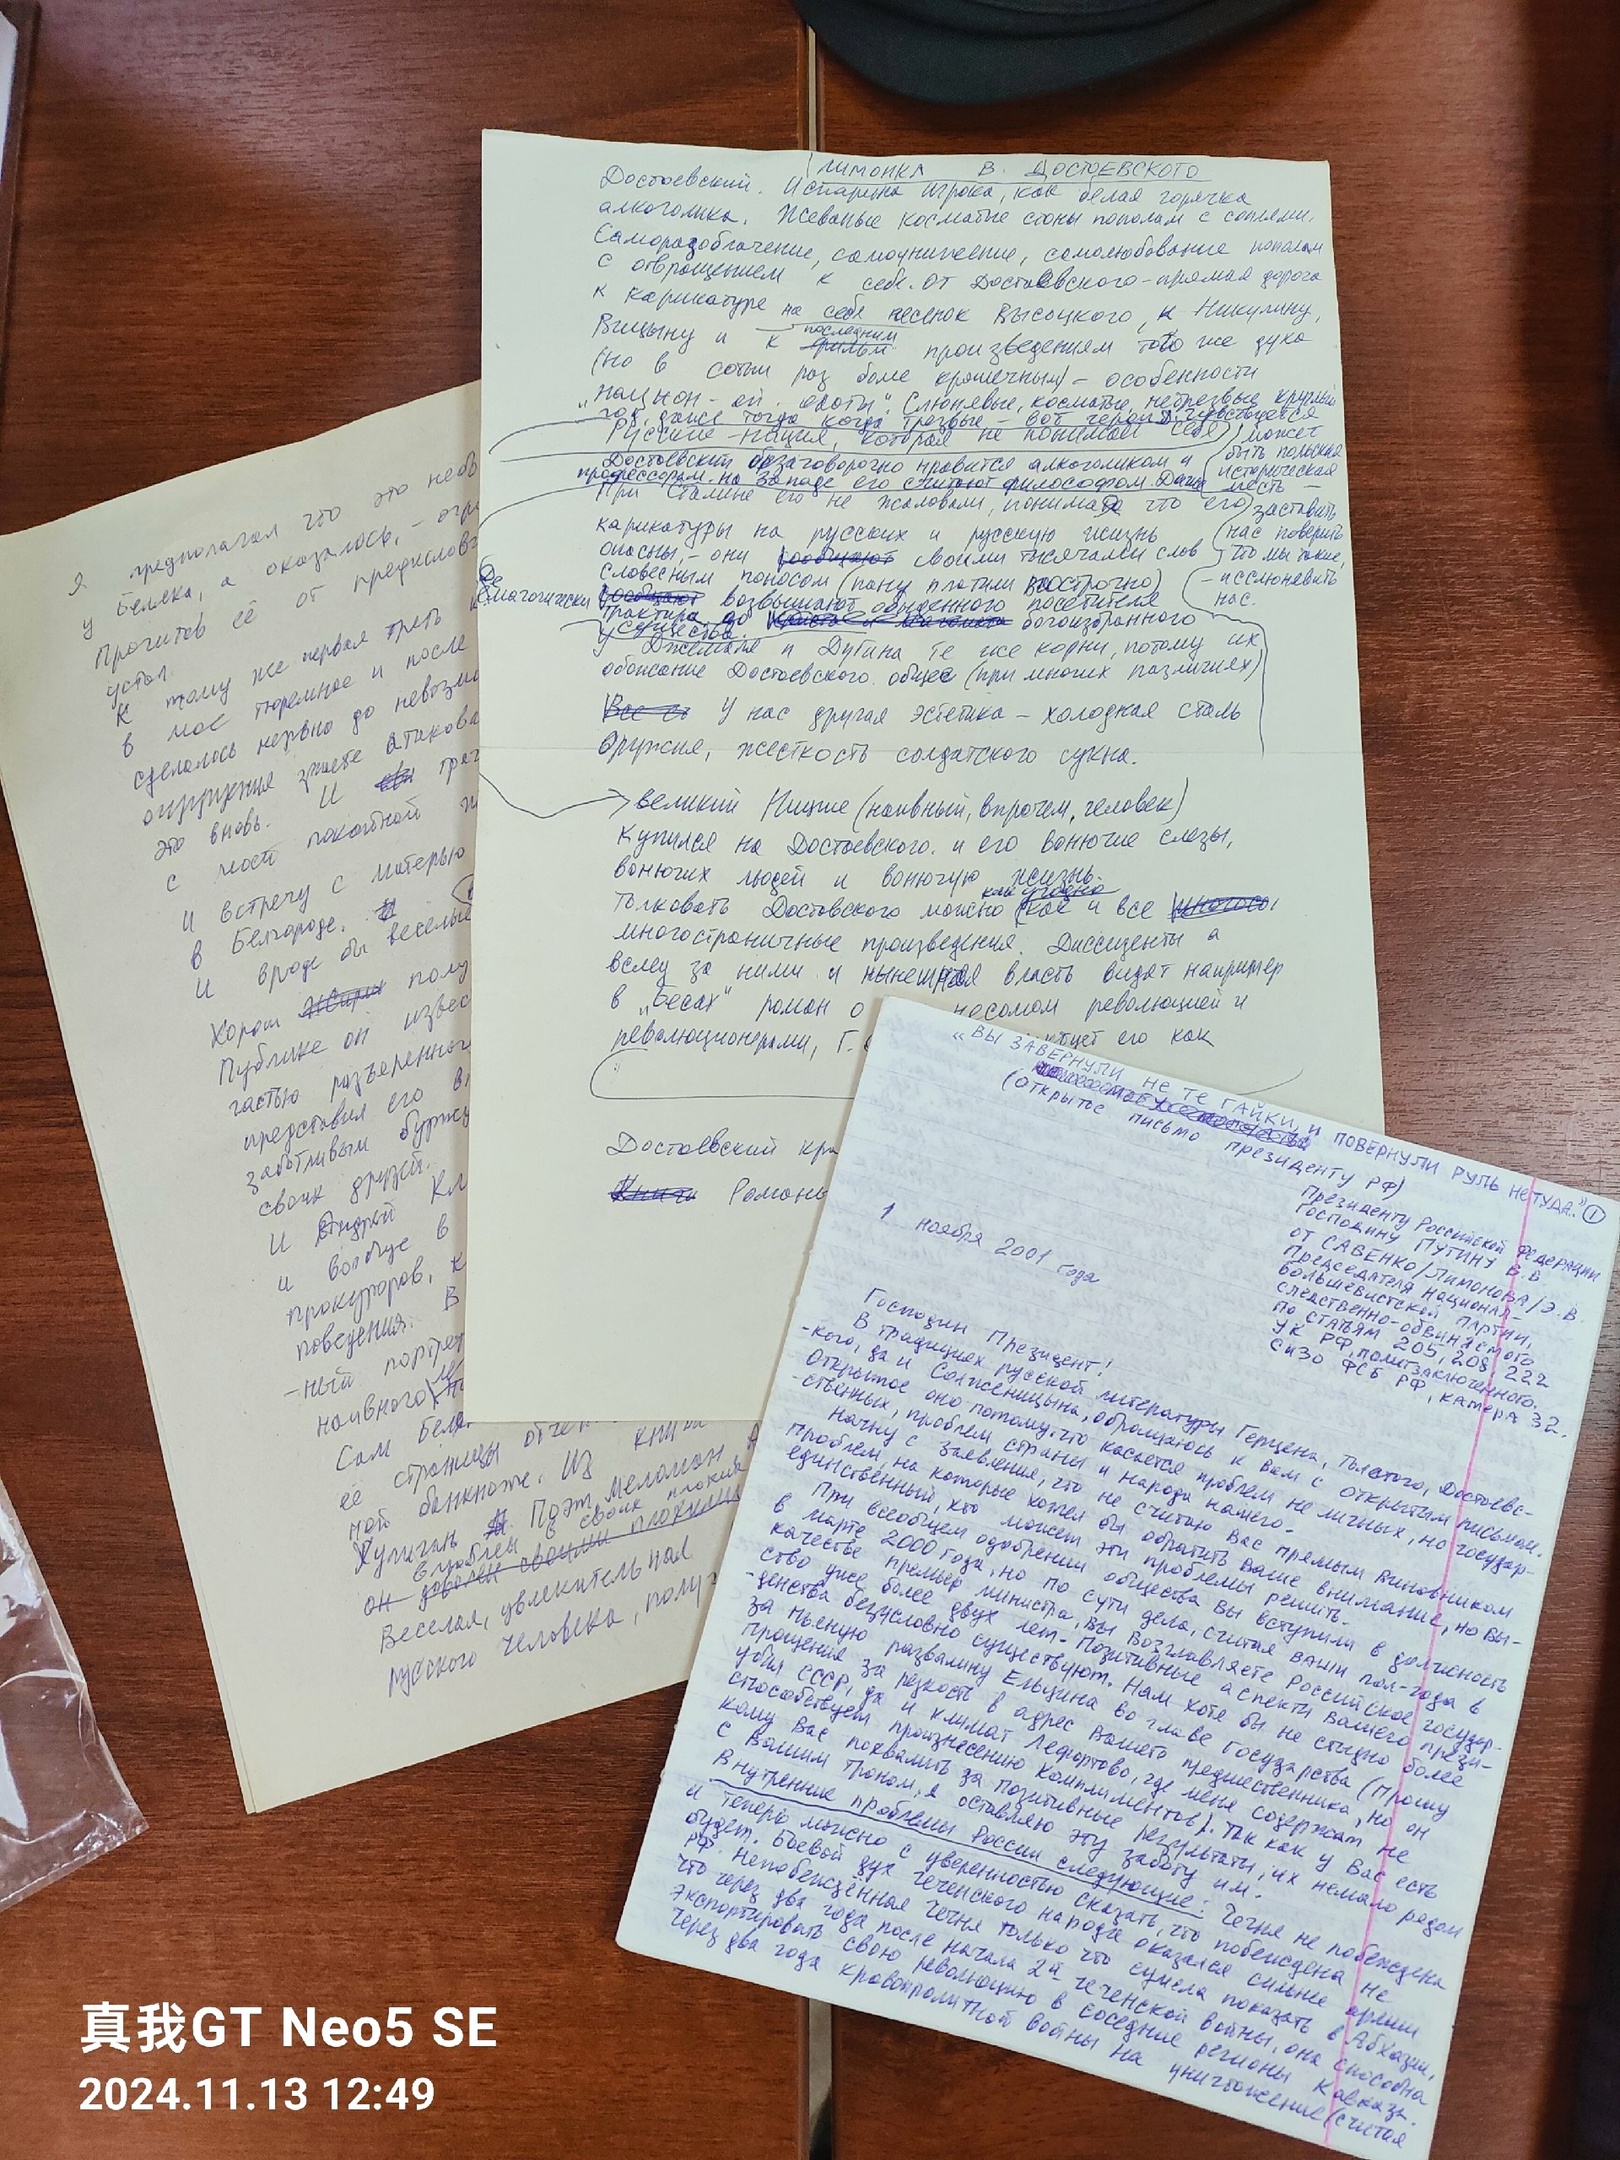 ЛИМОНКА В ДОСТОЕВСКОГО
Достоевский. Испарина игрока, как белая горячка
алкоголика. Жеваные косматые стоны пополам с соплями.
Саморазоблачение, самоунижение, самолюбование пополам
с отвращением к себе. От Достоевского - прямая дорога
к карикатуре на себя песенок Высоцкого, к Никулину,
Вицыну и к последним произведениям того же духа
(но в сотни раз более крошечным) - особенности
"национ-ой охоты". Слюнявые, косматые, нетрезвые круглый
год, даже тогда когда трезвые - вот герои Д.
Русские - нация, которая не понимает себя
Достоевский безоговорочно нравится алкоголикам и
профессорам. на Западе его считают философом.
При Сталине его не жаловали, понимая что его
карикатуры на русских и русскую жизнь
опасны, - они своими тысячами слов
словесным поносом (пану платили построчно)
Демагогически возвышают обыденного посетителя
трактира до богоизбранного
существа.
может
быть польская
историческая
месть -
заставить
нас поверить
что мы такие,
- исслюневить
нас.
У Джемаля и Дугина те же корни, потому их
обожание Достоевского общее (при многих различиях)
У нас другая эстетика - холодная сталь
оружия, жесткость солдатского сукна.
великий Ницше (наивный, впрочем, человек)
купился на Достоевского. и его вонючие слезы,
вонючих людей и вонючую жизнь.
Толковать Достовского можно как угодно (как и все
многостраничные произведения. Диссиденты а
вслед за ними и нынешняя власть видят например
в "Бесах" роман о несомом революцией и
революционерами, Г. его как
Достоевский
Романы
Я предполагал что это
у Беляка, а оказалось, -
Прочитав её от
устал.
К тому же первая треть
в мое тюремное и после
сделалось нервно до
окружения атакова
это вновь. И
с
И встречу с матерью
в Белгороде.
И вроде бы веселые
Хорош полу
Публике он извес
частью разъеренног
представил его
заботливым буржу
своих друзей.
И Андрей
и вообще в
прокуроров, к
поведения. В
-ный портрет
наивного
Сам Беля
её страницы отчет
ной банкноте. Из книги
Хулиган Поэт, меломан
влюблен в своих плохих
он доволен своими плохими
Веселая, увлекательная
русского человека, полу
"ВЫ ЗАВЕРНУЛИ НЕ ТЕ ГАЙКИ, И ПОВЕРНУЛИ РУЛЬ НЕ ТУДА.." 1
(открытое письмо президенту РФ)
Президенту Российской Федерации
Господину ПУТИНУ В.В.
от САВЕНКО/ЛИМОНОВА/Э.В.
Председателя Национал-
большевистской Партии,
следственно-обвиняемого
по статьям 205, 208, 222
УК РФ, политзаключенного.
СИЗО ФСБ РФ, камера 32.
1 ноября 2001 года
Господин Президент!
В традициях русской литературы Герцена, Толстого, Достоевс-
-кого, да и Солженицына, обращаюсь к Вам с открытым письмом.
Открытое оно потому, что касается проблем не личных, но государ-
-ственных, проблем страны и народа нашего.
Начну с заявления, что не считаю Вас прямым виновником
проблем, на которые хотел бы обратить Ваше внимание, но Вы -
единственный, кто может эти проблемы решить.
При всеобщем одобрении общества Вы вступили в должность
в марте 2000 года, но по сути дела, считая Ваши пол-года в
качестве премьер министра, Вы возглавляете Российское государ-
ство уже более двух лет. Позитивные аспекты Вашего прези-
-дентства безусловно существуют. Нам хотя бы не стыдно более
за пьяную развалину Ельцина во главе государства (прошу
прощения за резкость в адрес Вашего предшественника, но он
убил СССР, да и климат Лефортово, где меня содержат не
способствует произнесению комплиментов). Так как у Вас есть
кому Вас похвалить за позитивные результаты, их немало рядом
с Вашим троном, я оставляю эту заботу им.
Внутренние проблемы России следующие: Чечня не побеждена
и теперь можно с уверенностью сказать, что побеждена не
будет. Боевой дух чеченского народа оказался сильнее армии
РФ. Непобеждённая Чечня только что сумела показать в Абхазии,
что через два года после начала 2й чеченской войны, она способна
экспортировать свою революцию в соседние регионы Кавказа.
Через два года кровопролитной войны на уничтожение (считая
真我GT Neo5 SE
2024.11.13 12:49